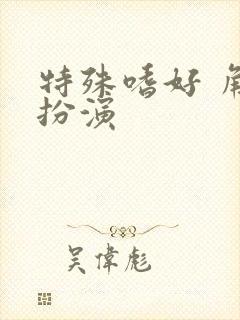 特殊嗜好 角
扮演
吴偉彪